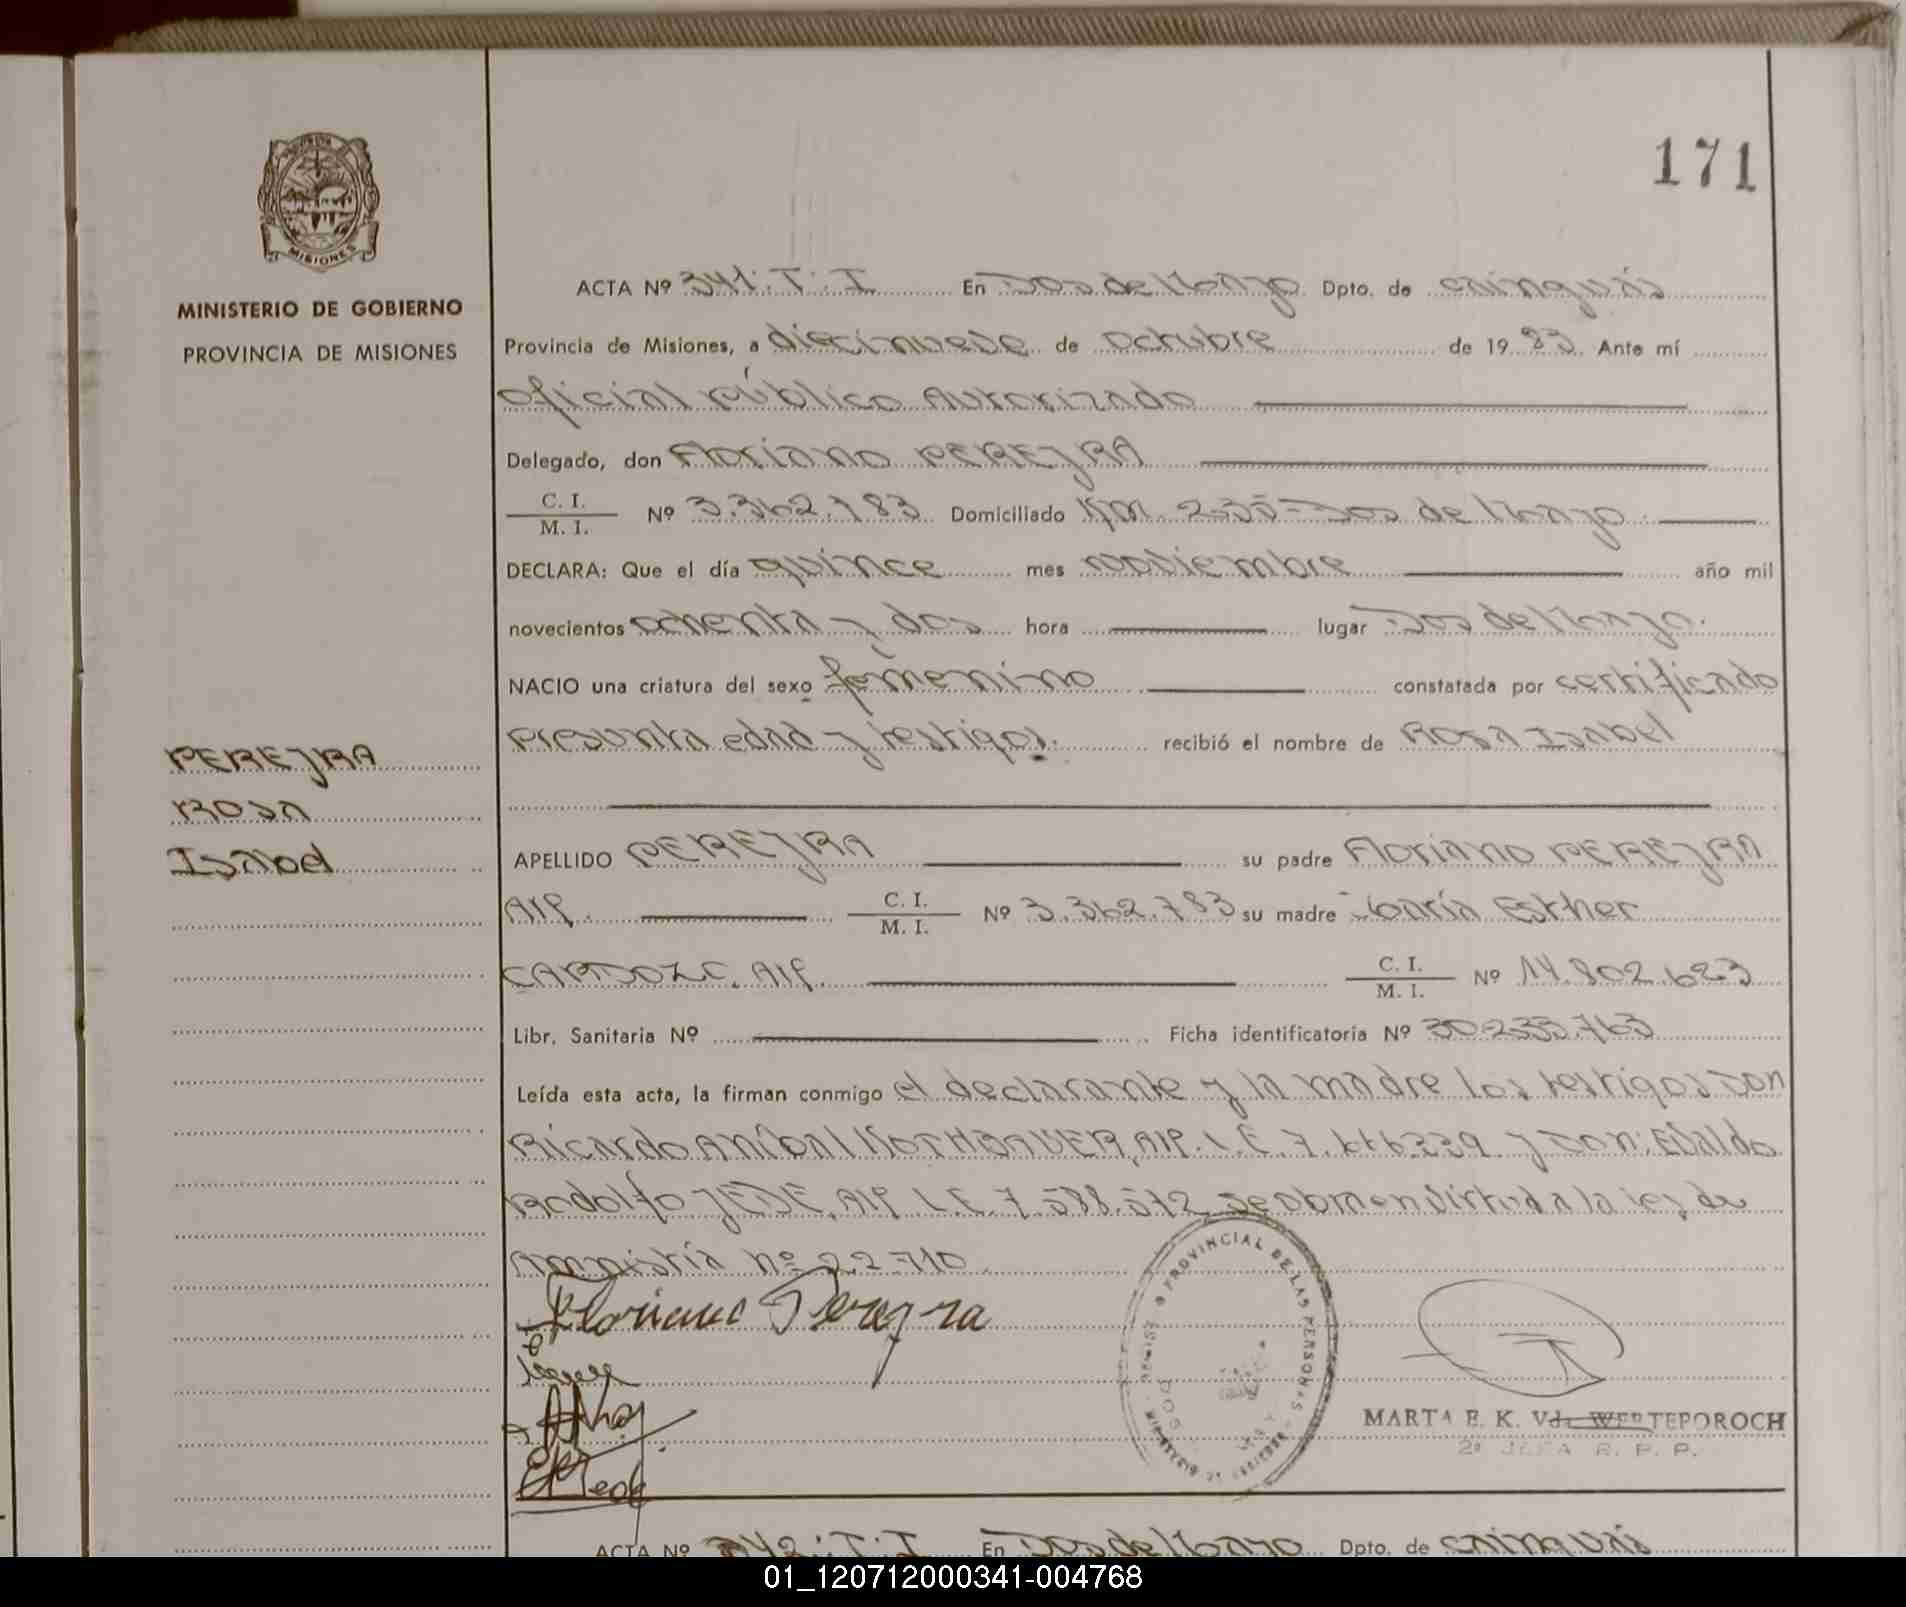 171
MISIONES
MINISTERIO DE GOBIERNO
PROVINCIA DE MISIONES
ACTA Nº 341·T·I En Dos de Mayo Dpto. de Cainguás
Provincia de Misiones, a diecinueve de octubre de 19 83 Ante mí
Oficial Público Autorizado
Delegado, don Floriano PEREYRA
C. I.
M. I. Nº 3.362.783 Domiciliado Km. 235 - Dos de Mayo.
DECLARA: Que el día quince mes noviembre año mil
novecientos ochenta y dos hora lugar Dos de Mayo.
NACIO una criatura del sexo femenino constatada por certificado
presunta edad y testigos. recibió el nombre de Rosa Isabel
PEREYRA
ROSA
Isabel
APELLIDO PEREYRA su padre Floriano PEREYRA
Arg. C. I.
M. I. Nº 3.362.783 su madre María Esther
CARDOZO, Arg. C. I.
M. I. Nº 14.802.623
Libr. Sanitaria Nº Ficha identificatoria Nº 30.235.763
Leída esta acta, la firman conmigo el declarante y la madre los testigos Don
Ricardo Aníbal Arg. L.E. 7. y Don: Edaldo
Rodolfo JEDE, Arg. L.E. 7.588.572 se obro en virtud a la ley de
Amnistía nº 22.710
Floriano Pereyra
PROVINCIAL DE LAS PERSONAS
MARTA E. K. V WERTEPOROCH
2ª JEFA R. P. P.
ACTA Nº 342·T·I En Dos de Mayo Dpto. de Cainguás
01_120712000341-004768